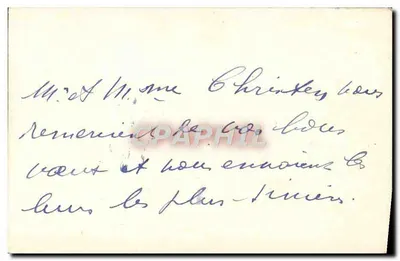 Mr et Mme Christen vous
remercient de vos bons
vœux et vous envoient les
leurs les plus sincères.
CPAPHIL